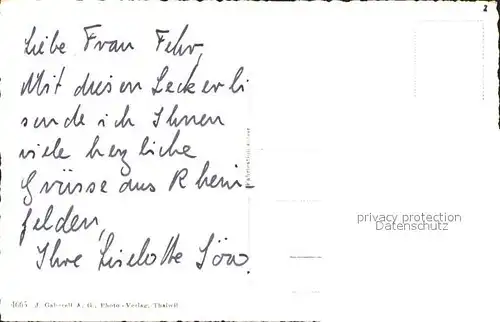 Liebe Frau Fehr,
Mit diesen Leckerli
sende ich Ihnen
viele herzliche
Grüsse aus Rhein-
felden,
Ihre Liselotte
4665 J. Gaberell A. G., Photo-Verlag, Thalwil
privacy protection
Datenschutz